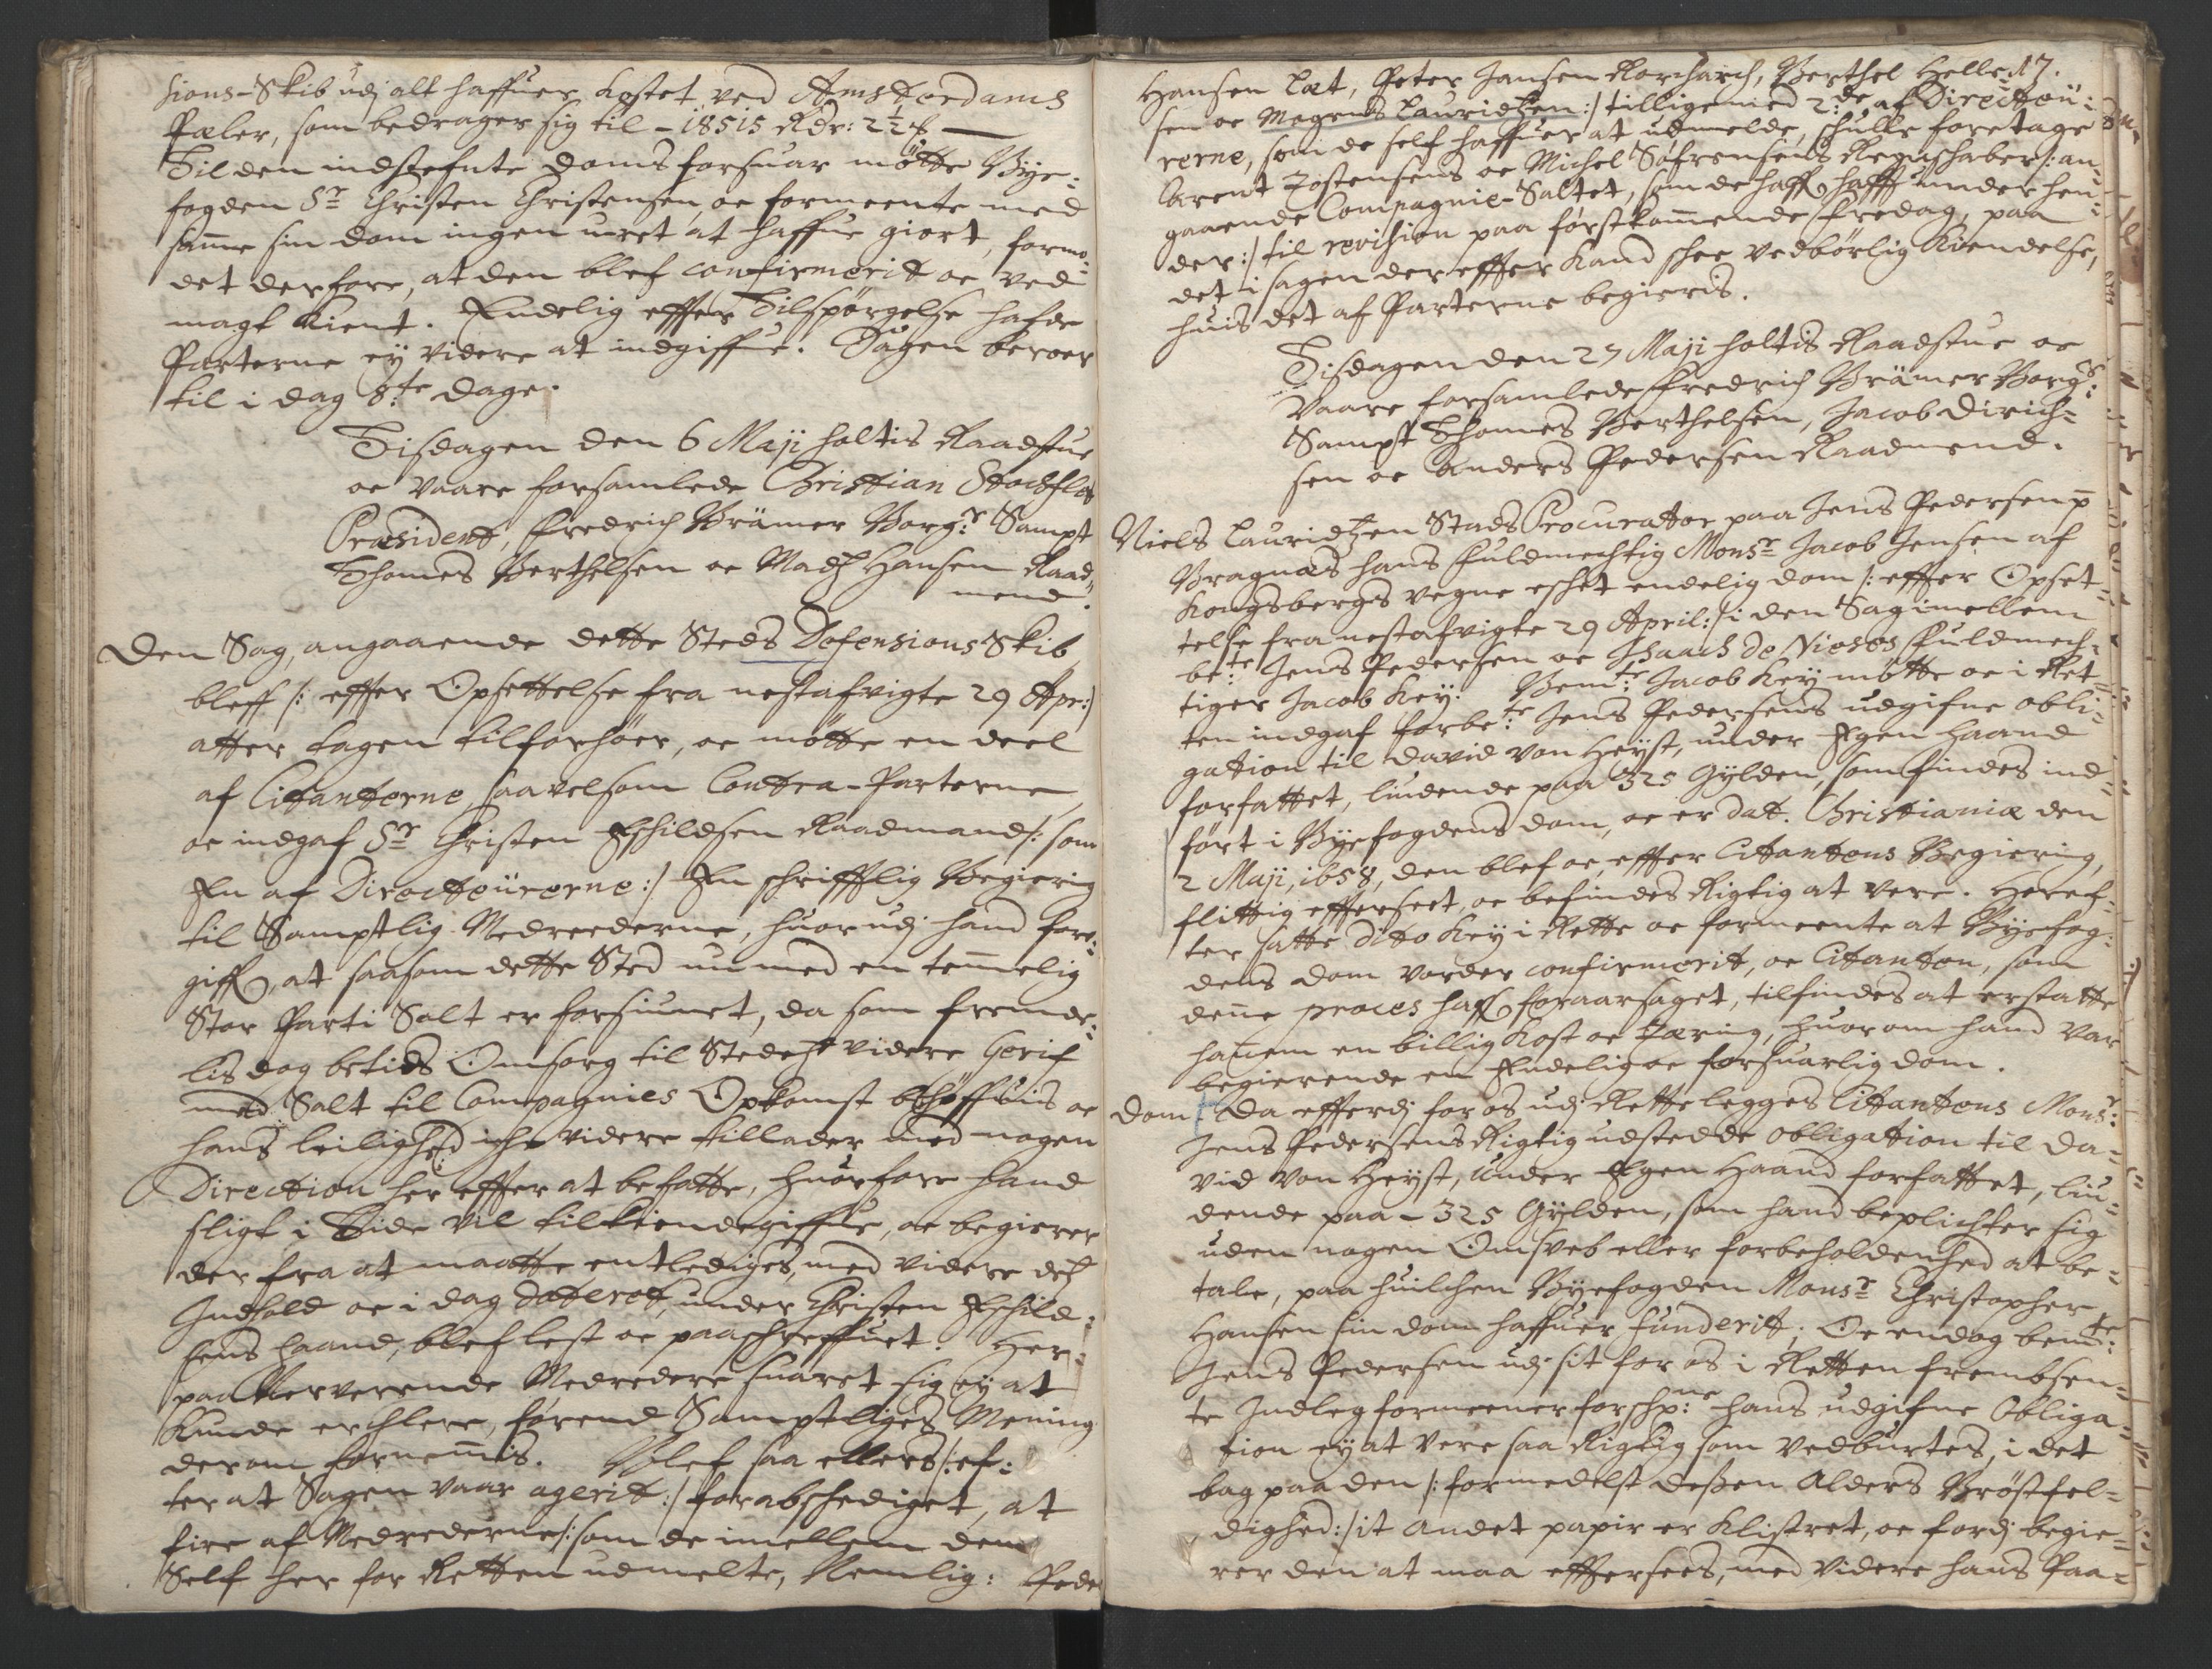 sions-Skib udj alt haffuer kostet ved Amsterdams
Pæler, som bedrager sig til - 18515 Rdr: 2½ ß —
Til den indstefnte doms forsuar møtte Bye-
fogden Sr Christen Christensen, oc formeente med
samme sin dom ingen uret at haffue giort, formo-
det derfore, at den blef confirmerit oc ved
magt kient. Endelig effter Tilspørgelse hafde
Parterne ey videre at indgiffue. Sagen beroer
til i dag 8te dage.
Tisdagen den 6 Maji holtis Raadstue
oc vaare forsamlede Christian Stochflet
Præsident, Fredrich Brämer Borg:r Sampt
Thomes Berthelsen oc Madz Hansen Raad-
mend.
Den Sag, angaaende dette Steds Defensions Skib
bleff /: effter Opsettelse fra nestafvigte 29 Apr:/
atter tagen til forhøer, oc møtte en deel
af Citanterne, saavelsom Contra-Parterne,
oc indgaf Sr Christen Eschildsen Raadmand /: som
En af Directeürerne :/ En schrifftlig Begiering
til Samptlig Medreederne, huorudj hand fore-
giff, at saasom dette Sted nu med en temmelig
Stor Parti Salt er forsiunet, da som fremde-
lis dog betids Omsorg til Stedetz videre Gerif
med Salt til Compagnies Opkomst behøffuis oc
hans leilighed iche videre tillader med nogen
Direction her effter at befatte, huorfore hand
sligt i Tide vil tilkiendegiffue, oc begierer
der fra at maatte entlediges, med videre detz
Indhold oc i dag dateret, under Christen Eschild-
sens haand, blef lest oc paaschreffuet. Her-
paa Nerverende Medredere suaret sig ey at
kunde erchlere, førend Samptliges Mening
derom fornemmis. Blef saa ellers /: ef-
ter at Sagen vaar agerit :/ forabschediget, at
fire af Medrederne /: som de imellem dem
Self her for Retten udmelte, Nemlig: Peder
17.
Hansen Læt, Peter Jansen Rorcharch, Berthel Helle-
sen oc Mogens Lauridtzen :/ tilligemed 2:de af Directeü-
rerne, som de self haffuer at udmelde, schulle foretage
Arent Tostensens oc Michel Søfrensens Regnschaber /: an-
gaaende Compagnie-Saltet, som de haffr hafft under hen-
der :/ til revision paa førstkommende fredag, paa
det i sagen der effter kand schee vedbørlig Kiendelse,
huis det af Parterne begieris.
Tisdagen den 27 Maji holtis Raadstue oc
Vaare forsamlede Fredrich Brämer Borg:r
Sampt Thomes Berthelsen, Jacob Dirich-
sen oc Anders Pedersen Raadmend.
Niels Lauridtzen Stads Procurator paa Jens Pedersen p
Bragnæs hans fuldmechtig Monsr Jacob Jensen af
Kongsbergs vegne eschet endelig dom /: effter Opset-
telse fra nestafvigte 29 April :/ i den Sag imellem
be:te Jens Pedersen oc Isaach de Niebes fuldmech-
tiger Jacob Key. Bem:te Jacob Key møtte oc i Ret-
ten indgaf forbe:te Jens Pedersens udgifne obli-
gation til David von Heÿst, under Egen haand
forfattet, liudende paa 325 Gÿlden, som findes ind-
ført i Byefogdens dom, oc er dat. Christianiæ den
2 Maji, 1658, den blef oc, effter Citantens Begiering,
flittig effterseet, oc befindes Rigtig at vere. Heref-
ter satte dito Key i Rette oc formeente at Byefog-
dens dom vorder confirmerit, oc Citanten, som
denne proces haffr foraarsaget, tilfindes at erstatte
hannem en billig Kost oc Tæring, huorom hand var
begierende en Endelig oc forsuarlig dom.
Dom Da effterdj for os udj Rette legges Citantens Monsr:
Jens Pedersens Rigtig udstedde obligation til Da-
vid von Heÿst, under Egen Haand forfattet, liu-
dende paa - 325 Gÿlden, som hand beplichter sig
uden nogen Omsveb eller forbeholdenhed at be-
tale, paa huilchen Byefogden Monsr Christopher
Hansen sin dom haffuer funderit; Oc endog bem:te
Jens Pedersen udj sit for os i Retten fremsen-
te Indleg formeener forschr:ne hans udgifne Obliga-
tion ey at vere saa Rigtig som vedburtes, i det
bag paa den /: formedelst dessen Alders Brøstfel-
dighed :/ it andet papir er klistret, oc fordj begie-
rer den at maa effterseees, med videre hans Paa-